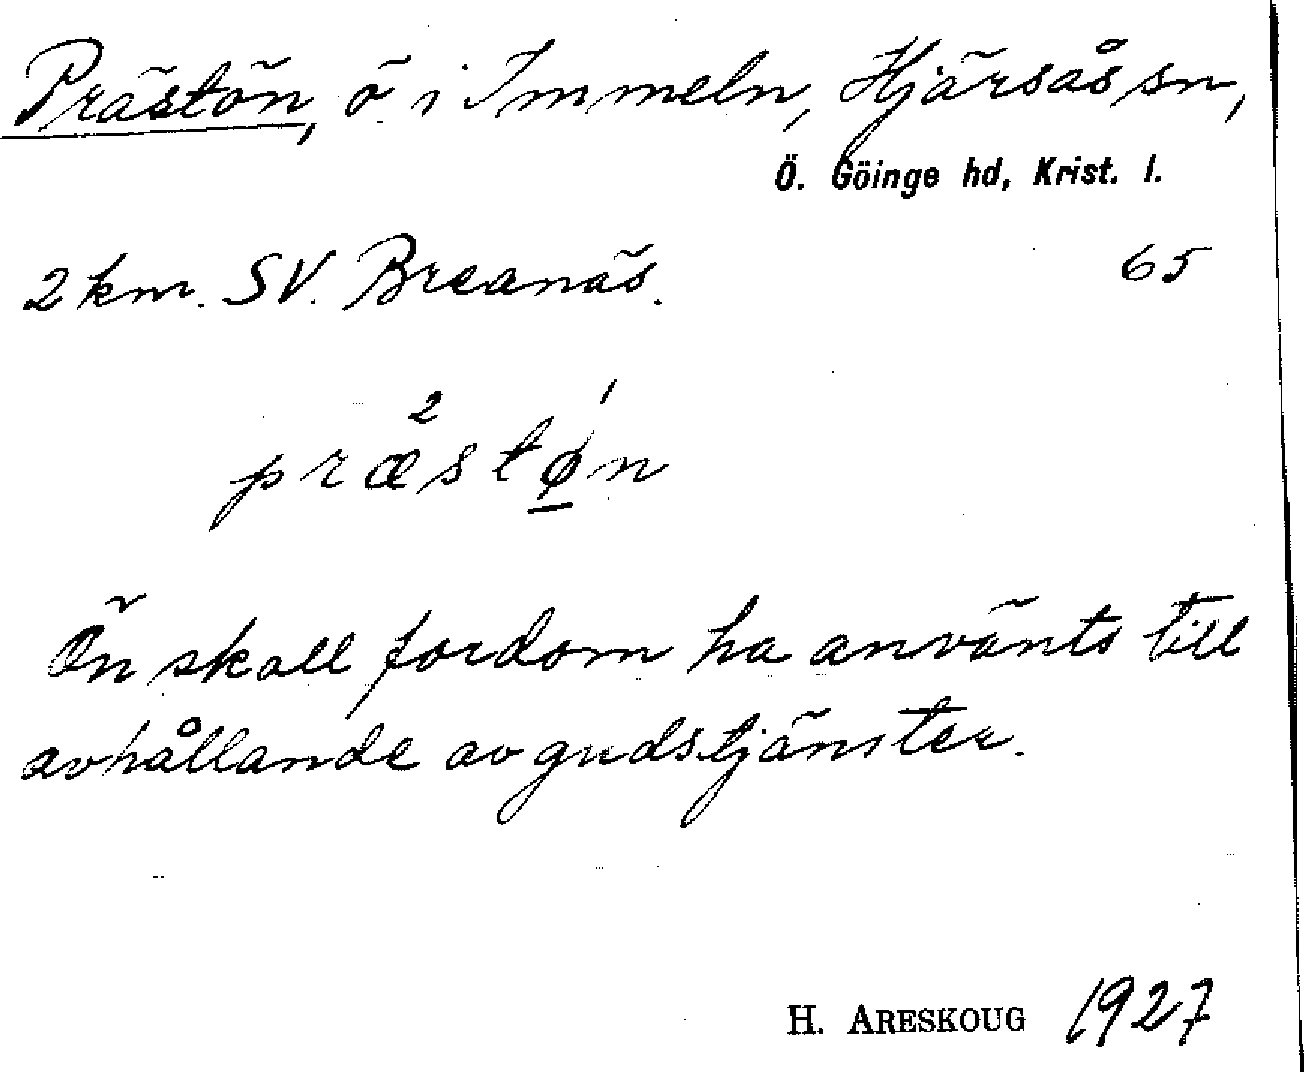 Prästön, ö i Immeln, Hjärsås sn,
Ö. Göinge hd, Krist. l.
2 km. SV. Breanäs. 65
præ²stø̱´n
Ön skall fordom ha använts till
avhållande av gudstjänster.
H. ARESKOUG 1927